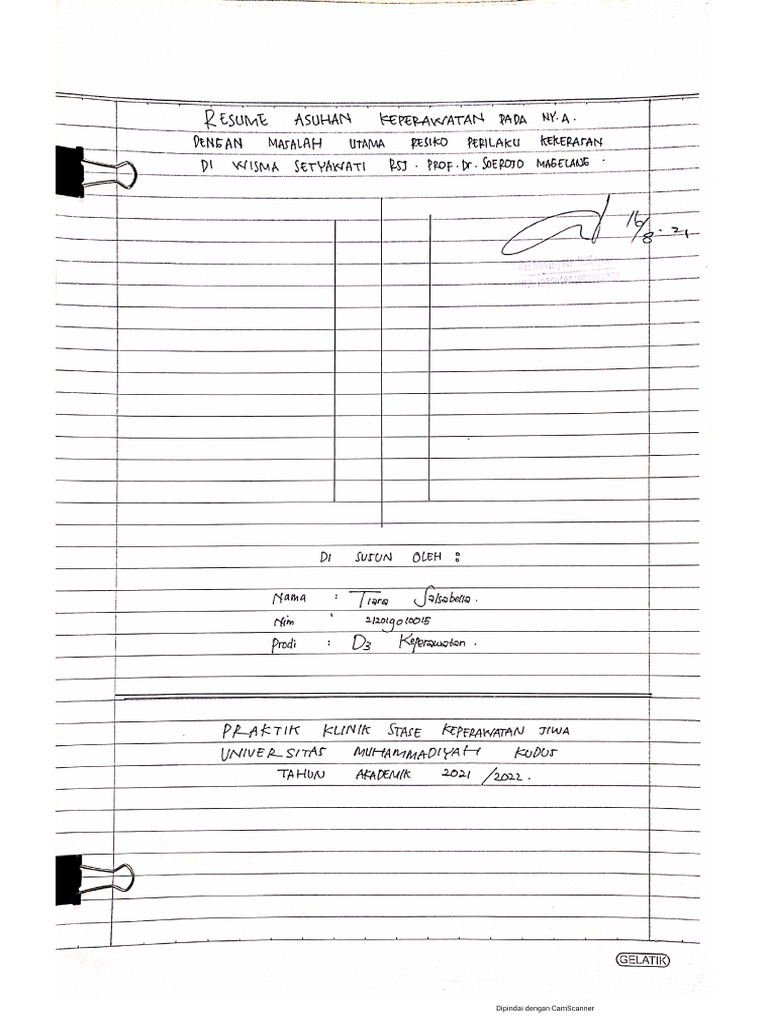 RESUME ASUHAN KEPERAWATAN PADA NY. A.
DENGAN MASALAH UTAMA RESIKO PERILAKU KEKERASAN
DI WISMA SETYAWATI RSJ. PROF. Dr. SOEROJO MAGELANG.
16/8-21
DI SUSUN OLEH :
Nama : Tiara Salsabella.
Nim : 212019010015
Prodi : D3 Keperawatan.
PRAKTIK KLINIK STASE KEPERAWATAN JIWA
UNIVERSITAS MUHAMMADIYAH KUDUS
TAHUN AKADEMIK 2021/2022.
GELATIK
Dipindai dengan CamScanner